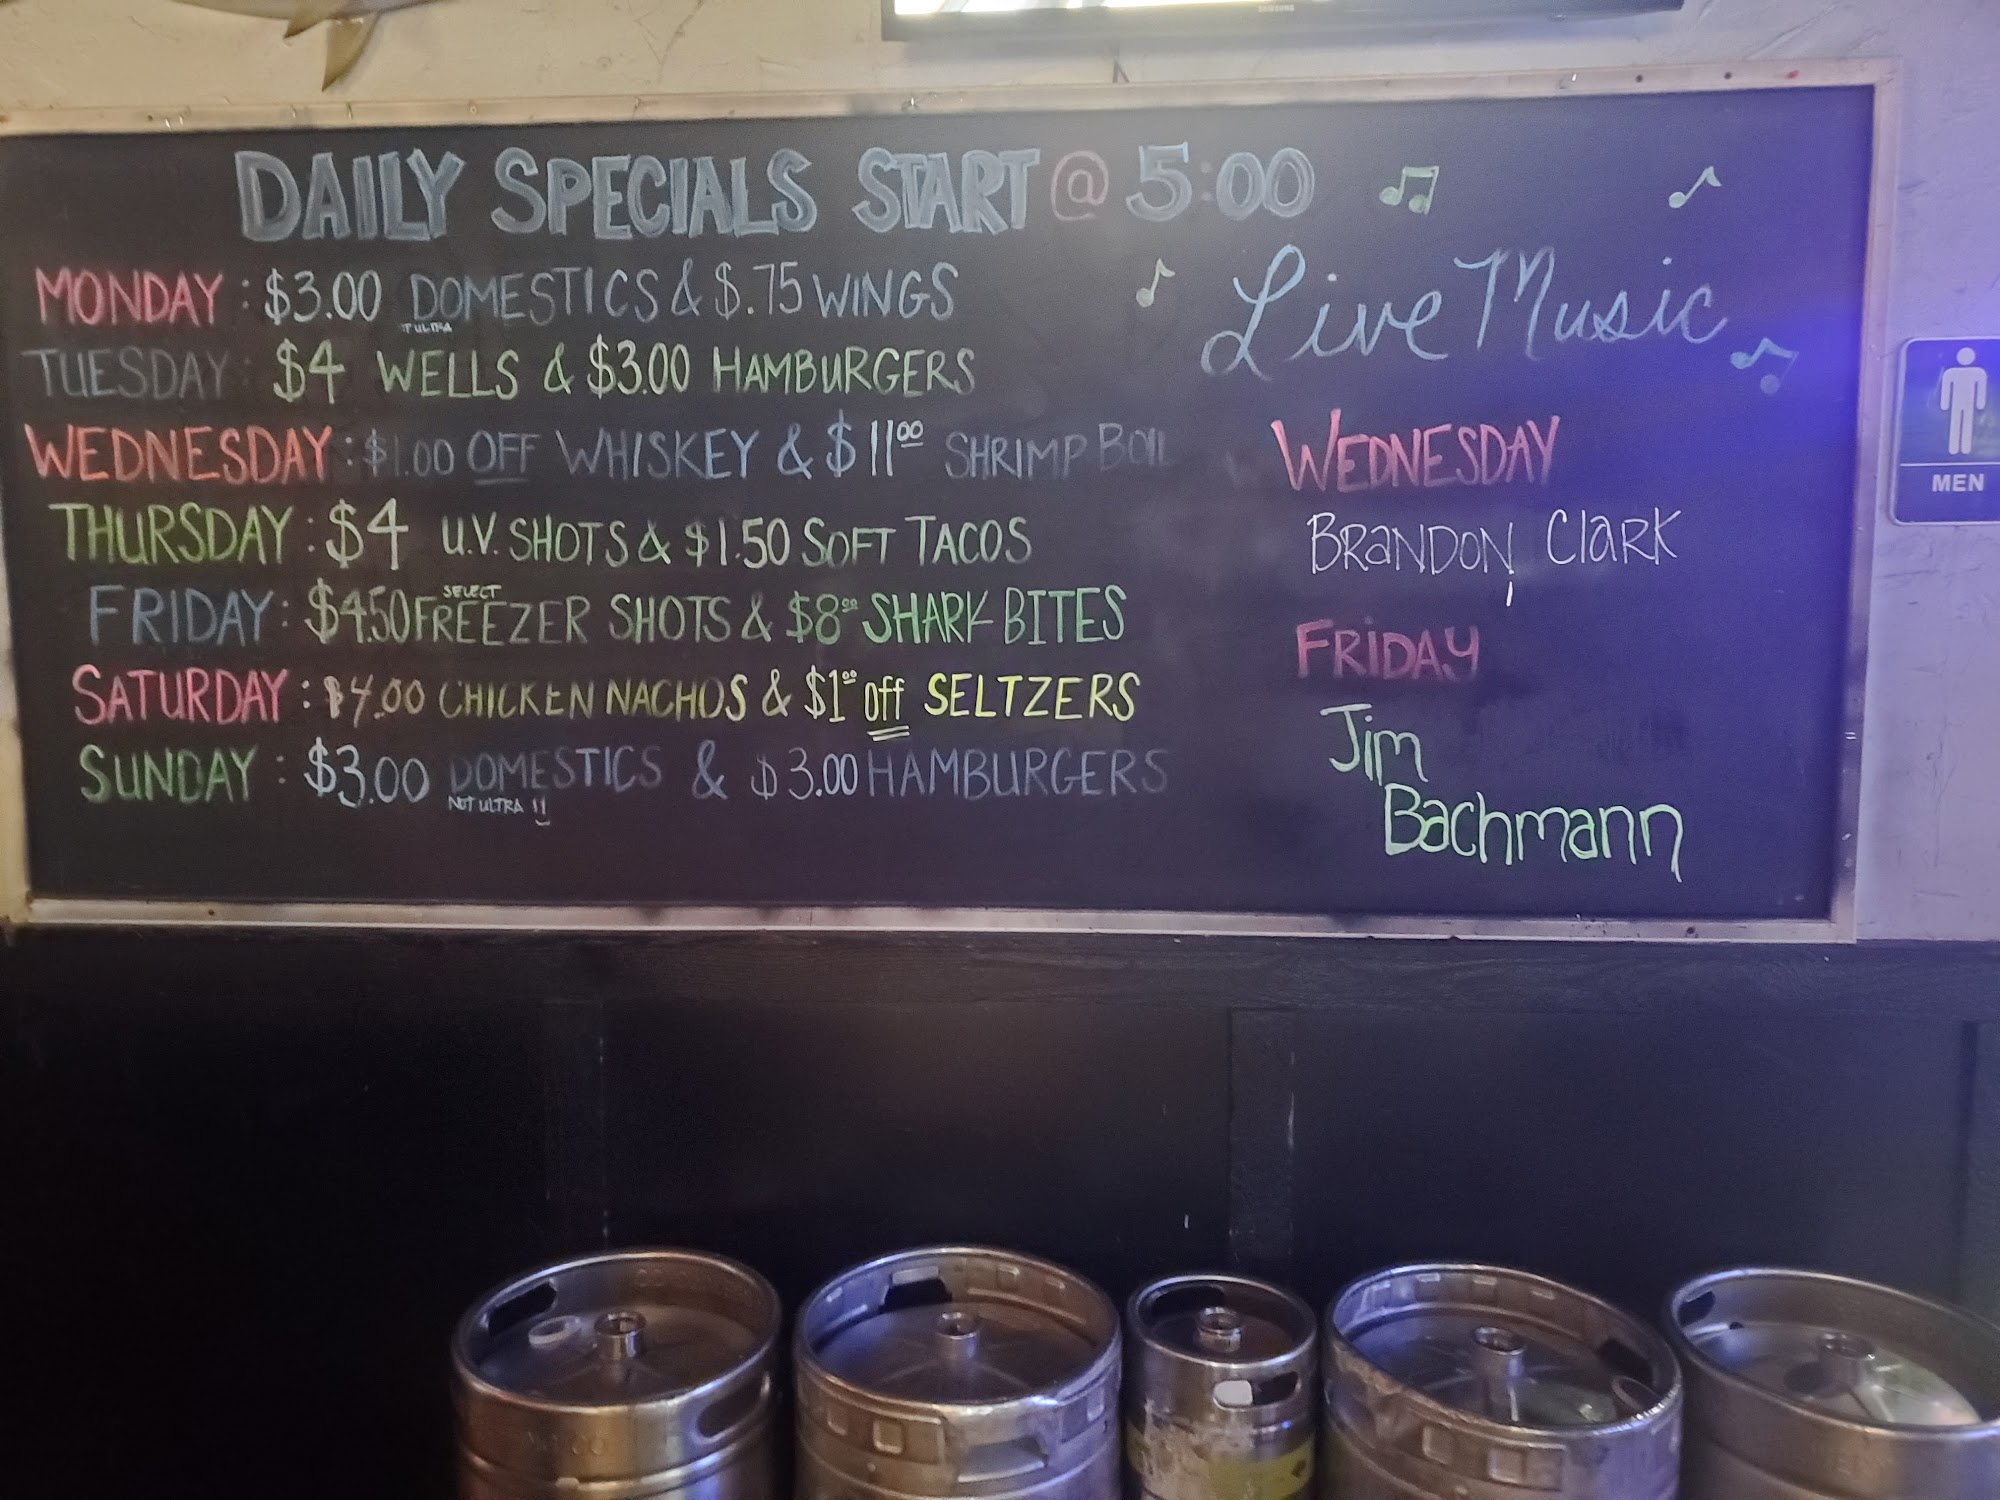 SAMSUNG
DAILY SPECIALS START @ 5:00
MONDAY : $3.00 DOMESTICS & $.75 WINGS
ULTRA
TUESDAY : $4 WELLS & $3.00 HAMBURGERS
WEDNESDAY : $1.00 OFF WHISKEY & $11.00 SHRIMP BOIL
THURSDAY : $4 U.V. SHOTS & $1.50 SOFT TACOS
SELECT
FRIDAY : $4.50 FREEZER SHOTS & $8.00 SHARK BITES
SATURDAY : $4.00 CHICKEN NACHOS & $1.00 off SELTZERS
SUNDAY : $3.00 DOMESTICS & $3.00 HAMBURGERS
NOT ULTRA !!
Live Music
WEDNESDAY
BRANDON Clark
FRIDAY
Jim
Bachmann
MEN